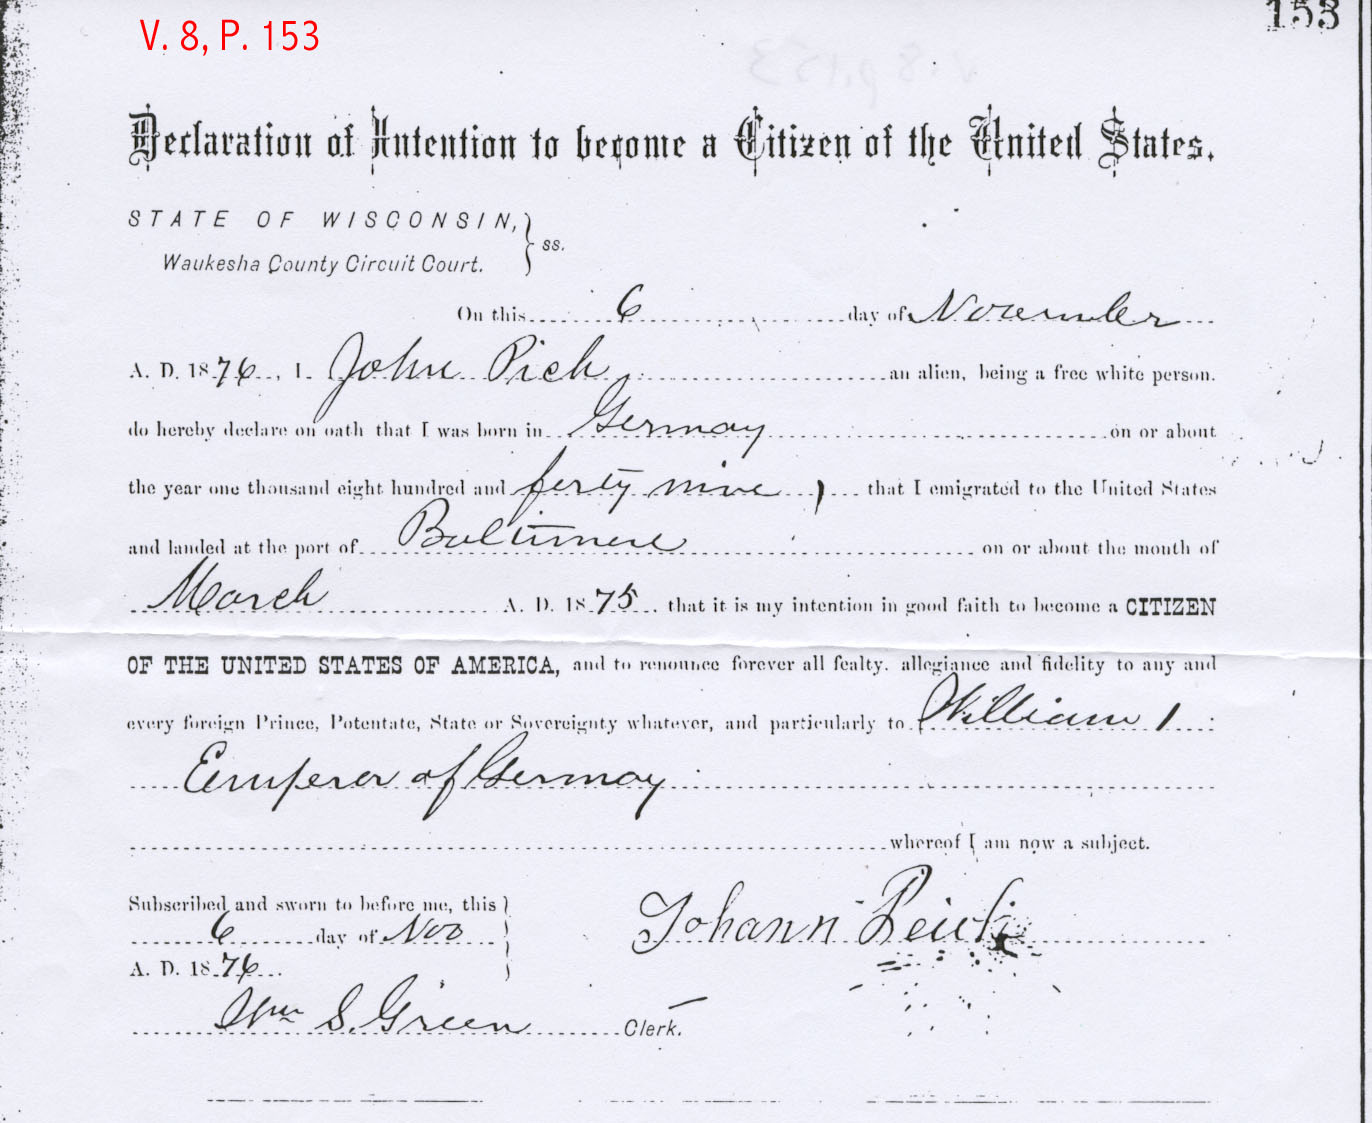 153
V. 8, P. 153
Declaration of Intention to become a Citizen of the United States.
STATE OF WISCONSIN,
Waukesha County Circuit Court. } ss.
On this 6 day of November
A. D. 1876, I John Pich an alien, being a free white person.
do hereby declare on oath that I was born in Germay on or about
the year one thousand eight hundred and forty nine, that I emigrated to the United States
and landed at the port of Baltimore on or about the month of
March A. D. 1875 that it is my intention in good faith to become a CITIZEN
OF THE UNITED STATES OF AMERICA, and to renounce forever all fealty. allegiance and fidelity to any and
every foreign Prince, Potentate, State or Sovereignty whatever, and particularly to William 1
Emperor of Germay
whereof I am now a subject.
Subscribed and sworn to before me, this
6 day of Nov
A. D. 1876
Johann
Wm S. Green Clerk.